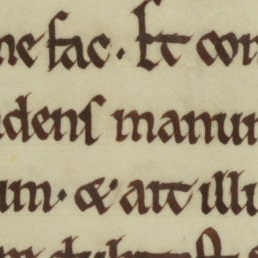 ne fac. Et con
dens manum
um. & ait illi